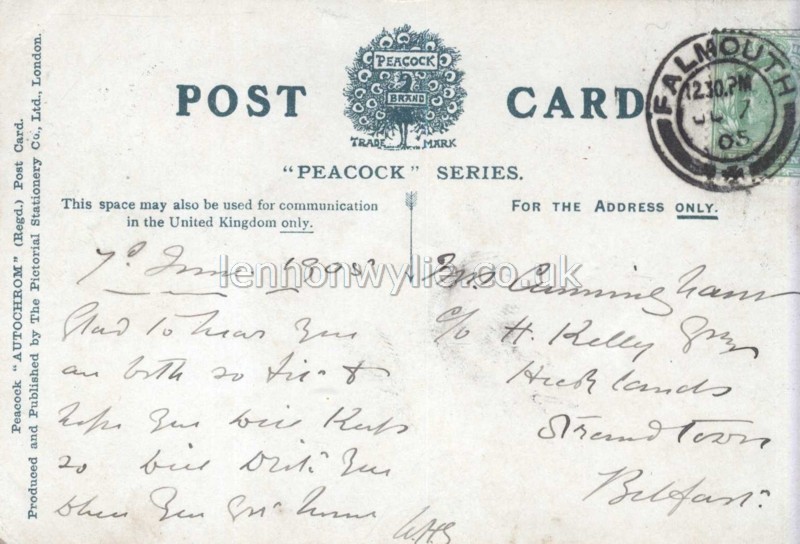 Peacock "AUTOCHROM" (Regd.) Post Card.
Produced and Published by The Pictorial Stationery Co., Ltd., London.
POST CARD
PEACOCK
BRAND
TRADE MARK
"PEACOCK" SERIES.
This space may also be used for communication
in the United Kingdom only.
FOR THE ADDRESS ONLY.
FALMOUTH
12.30.PM
7
05
lennonwylie.co.uk
7th June 1905
Glad to hear you
are both so fit &
hope you will keep
so will write you
when you get home
WHG
Mrs Cunningham
c/o H. Kelly Esq
Strandtown
Belfast